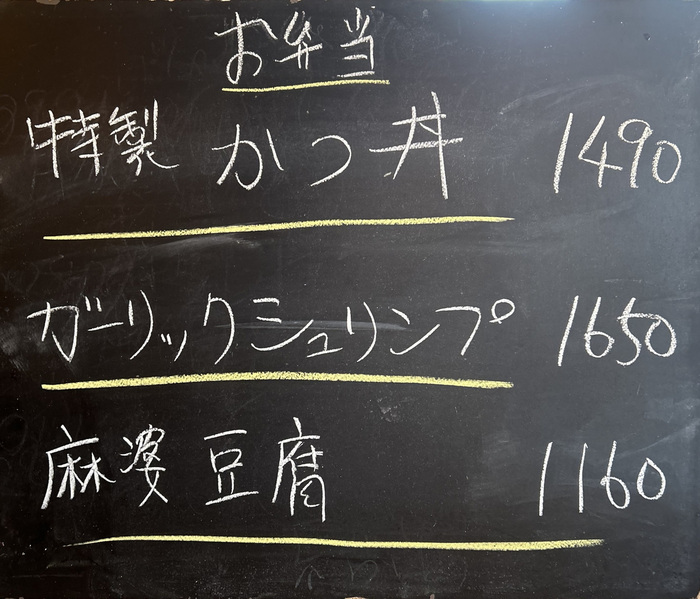 お弁当
特製 かつ丼 1490
ガーリックシュリンプ 1650
麻婆豆腐 1160